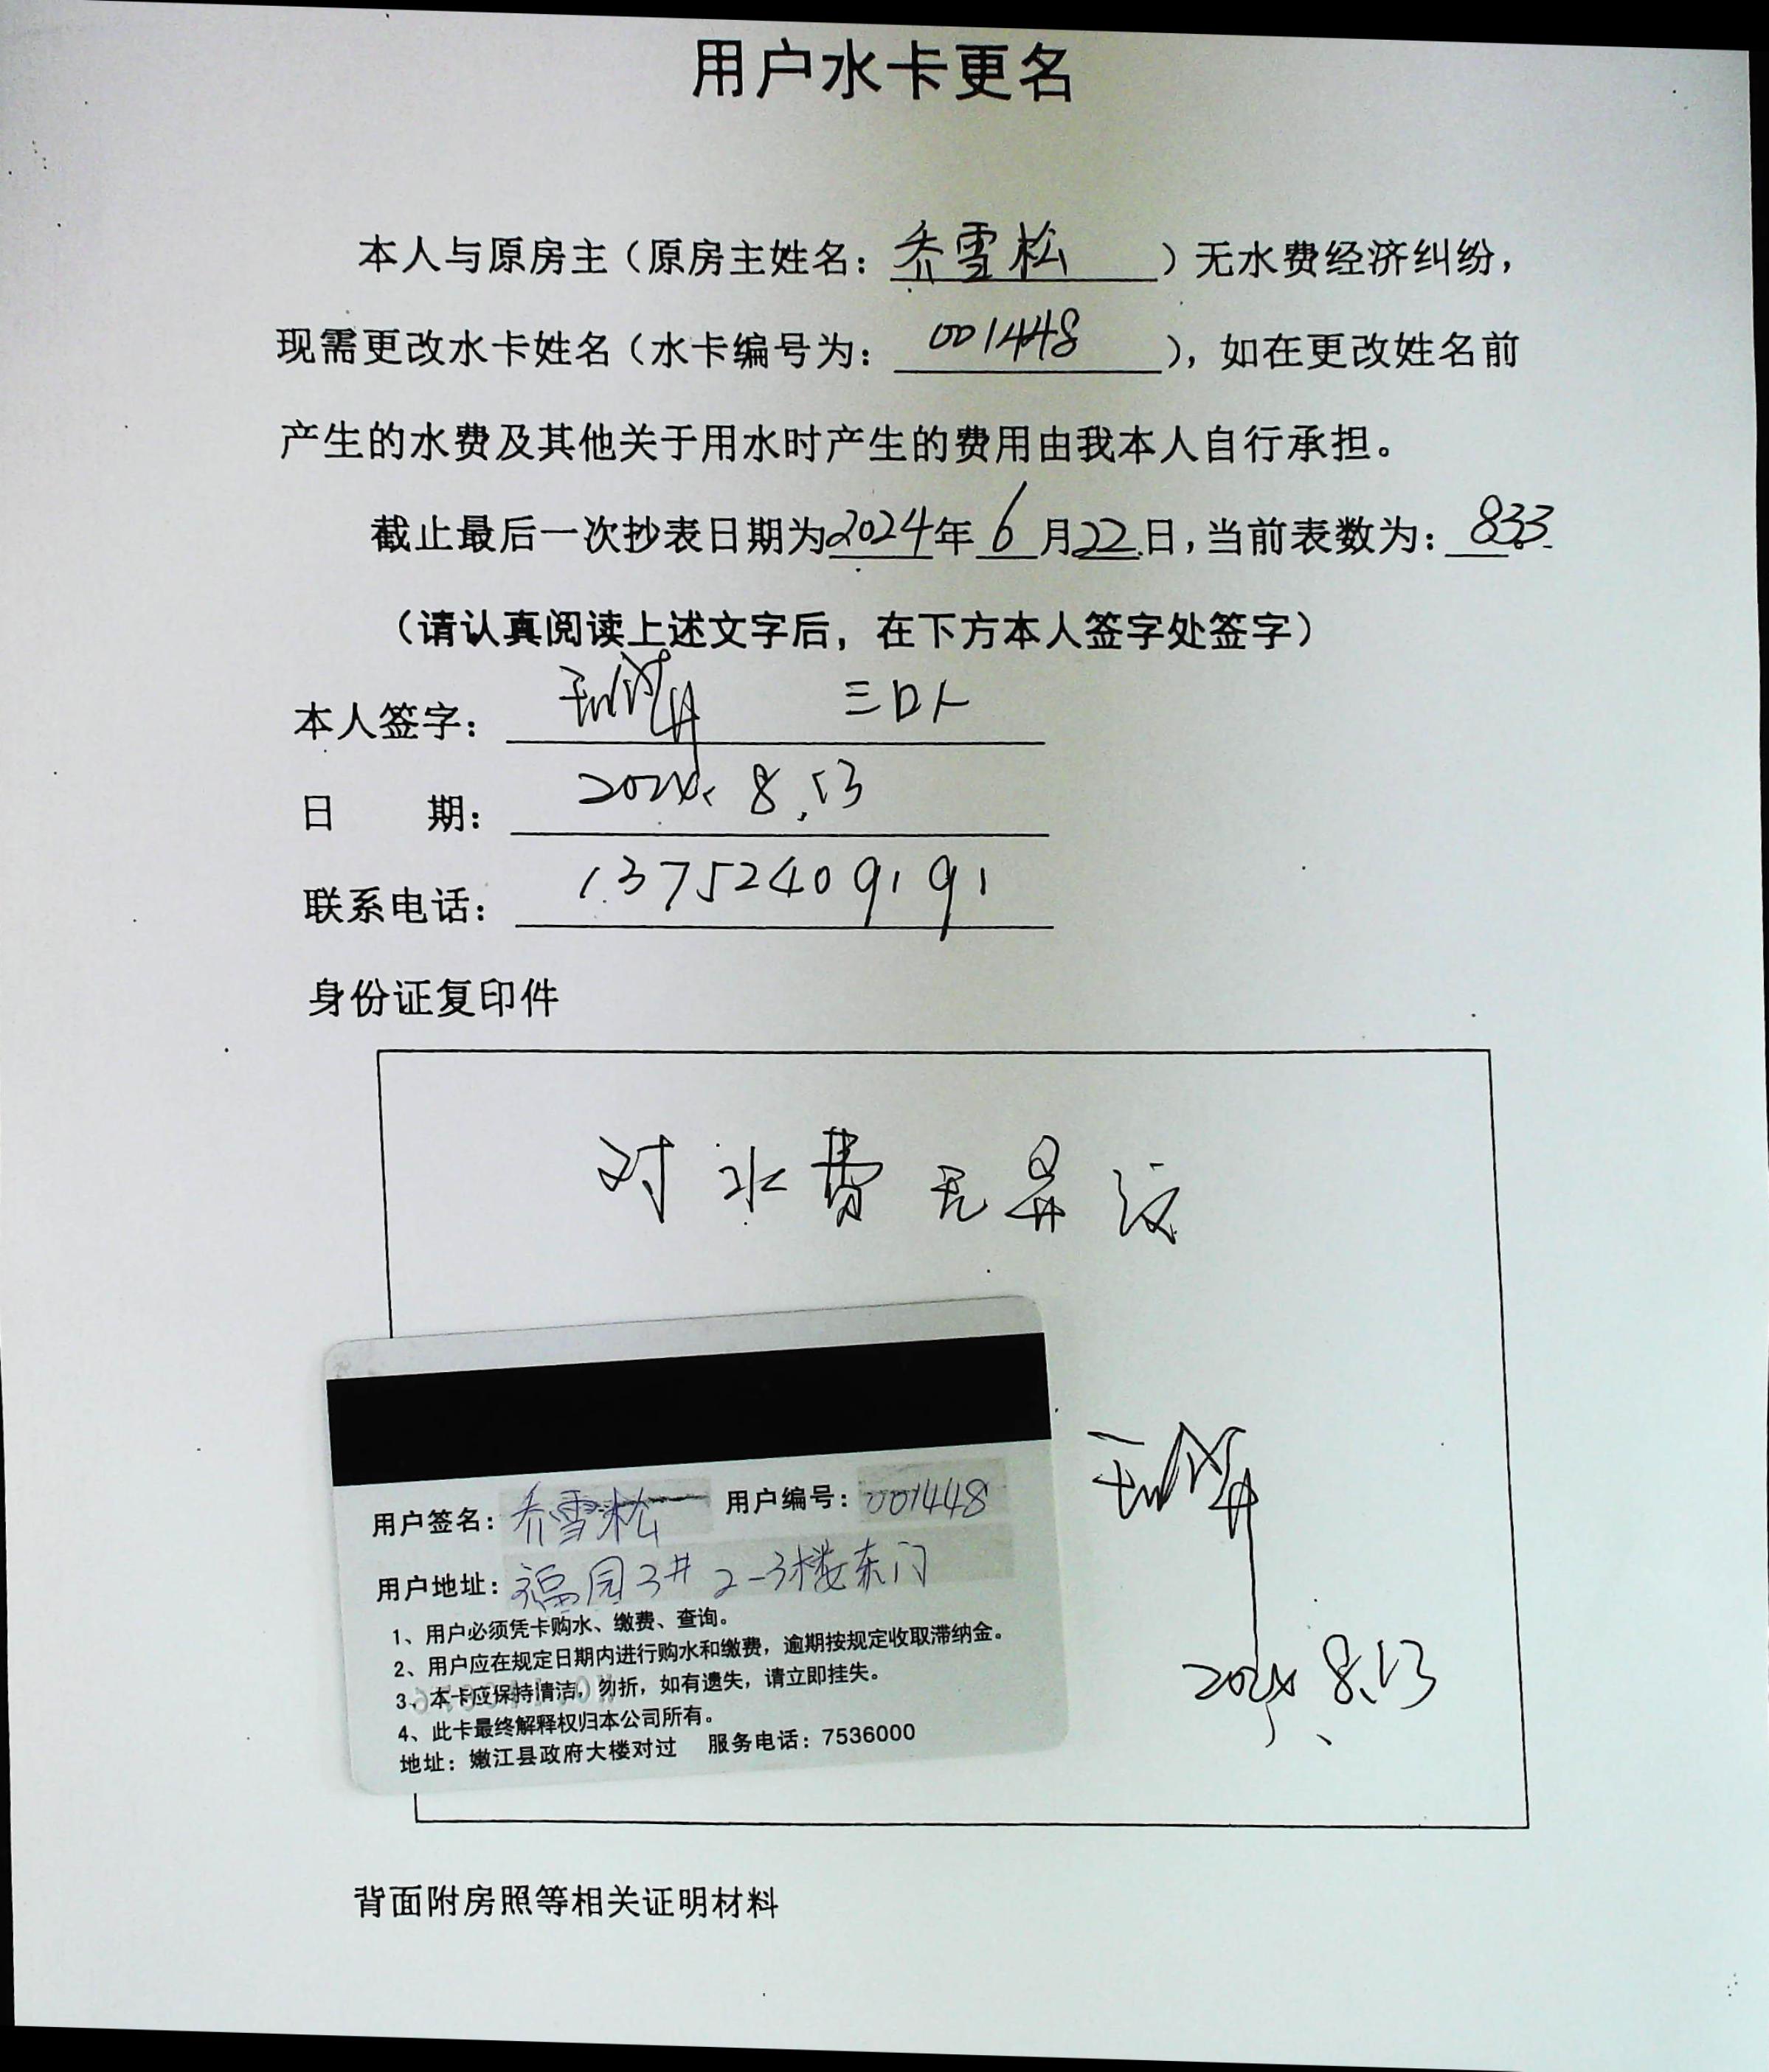 用户水卡更名
本人与原房主（原房主姓名：乔雪松）无水费经济纠纷，
现需更改水卡姓名（水卡编号为：001448），如在更改姓名前
产生的水费及其他关于用水时产生的费用由我本人自行承担。
截止最后一次抄表日期为2024年6月22日，当前表数为：833
（请认真阅读上述文字后，在下方本人签字处签字）
本人签字： 三口人
日 期：2024. 8.13
联系电话：13752409191
身份证复印件
对水费无异议
用户签名：乔雪松 用户编号：001448
用户地址：福园3# 2-3楼东门
1、用户必须凭卡购水、缴费、查询。
2、用户应在规定日期内进行购水和缴费，逾期按规定收取滞纳金。
3、本卡应保持清洁，勿折，如有遗失，请立即挂失。
4、此卡最终解释权归本公司所有。
地址：嫩江县政府大楼对过 服务电话：7536000
2024 8.13
背面附房照等相关证明材料